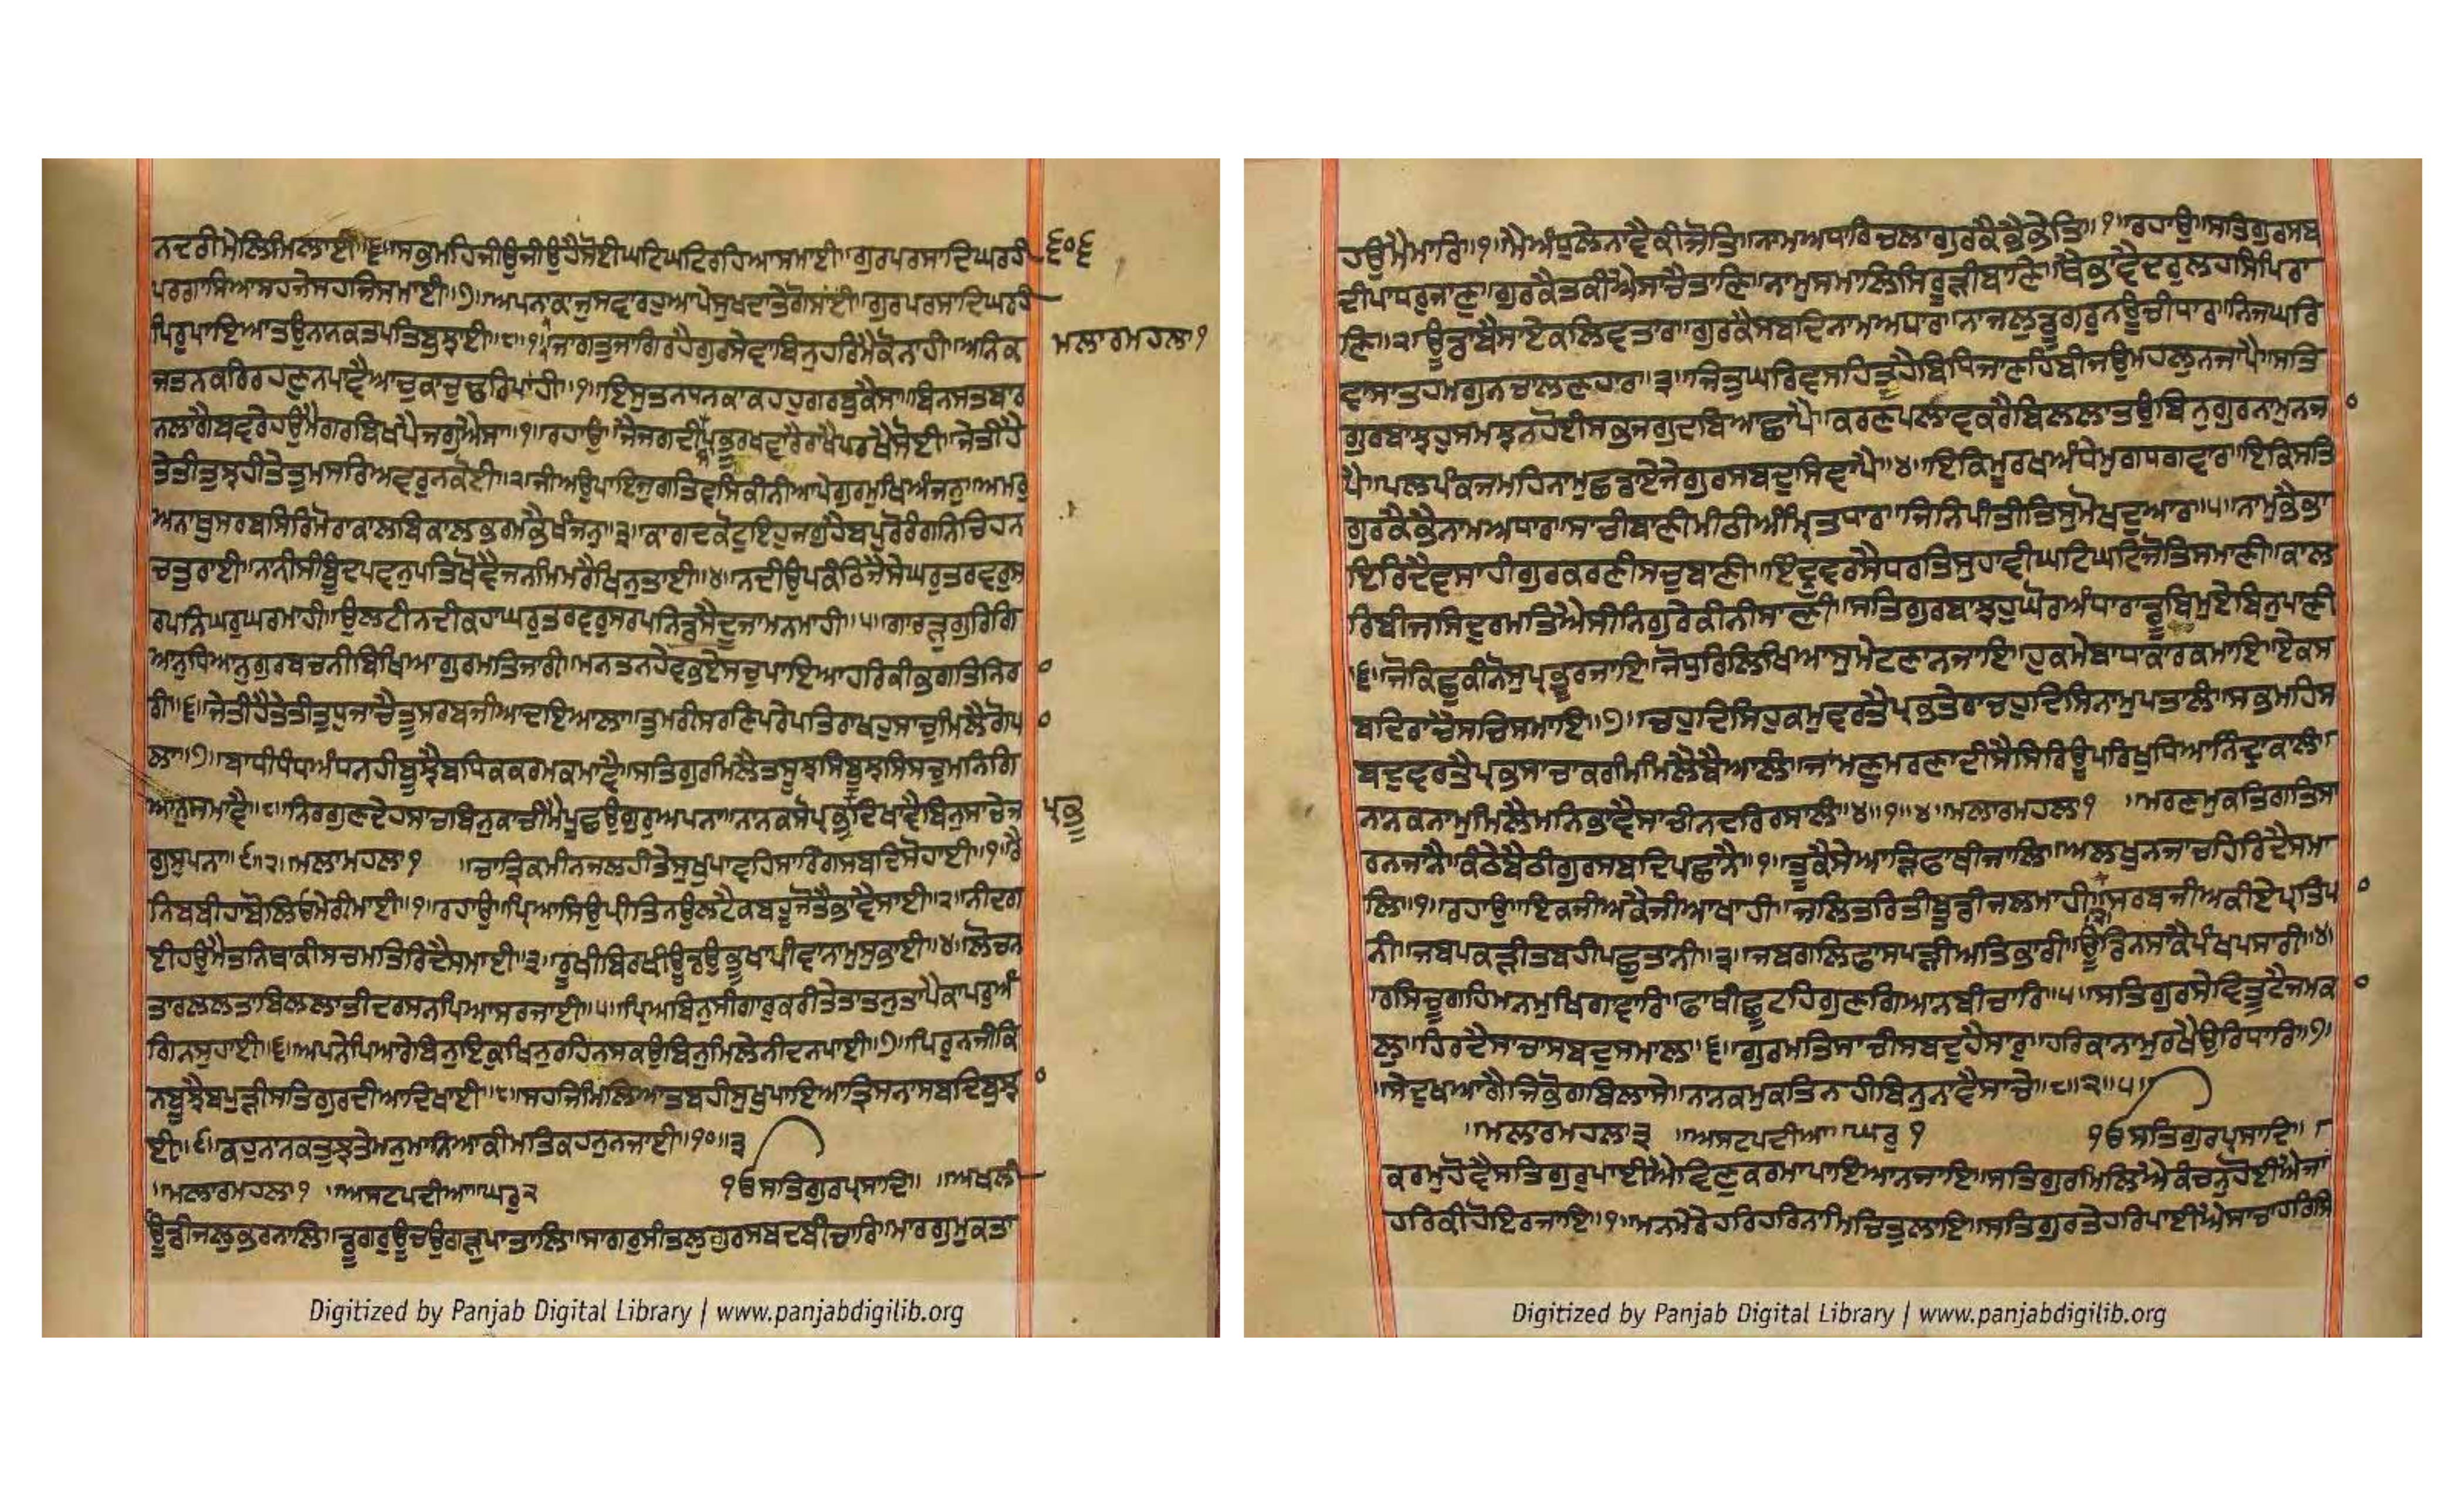 ਨਦਰੀਮੇਲਿਮਿਲਾਈ॥੬॥ਸਭਮਹਿਜੀਉਜੀਉਹੈਸੋਈਘਟਿਘਟਿਰਹਿਆਸਮਾਈ॥ਗੁਰਪਰਸਾਦਿਘਰਹੀ
੬੦੬
ਪਰਗਾਸਿਆਸਹਜੇਸਹਜਿਸਮਾਈ॥੭॥ਅਪਨਾਕਾਜੁਸਵਾਰਹੁਆਪੇਸੁਖਦਾਤੇਗੋਸਾਂਈ॥ਗੁਰਪਰਸਾਦਿਘਰਹੀ
ਪਿਰੁਪਾਇਆਤਉਨਾਨਕਤਪਤਿਬੁਝਾਈ॥੮॥੧॥ਜਾਗਤੁਜਾਗਿਰਹੈਗੁਰਸੇਵਾਬਿਨੁਹਰਿਮੈਕੋਨਾਹੀ॥ਅਨਿਕ
ਮਲਾਰਮਹਲਾ੧
ਜਤਨਕਰਿਰਹਣੁਨਪਾਵੈਆਚੁਕਾਚੁਢਰਿਪਾਂਹੀ॥੧॥ਇਸੁਤਨਧਨਕਾਕਹਹੁਗਰਬੁਕੈਸਾ॥ਬਿਨਸਤਬਾਰ
ਨਲਾਗੈਬਵਰੇਹਉਮੈਗਰਬਿਖਪੈਜਗੁਐਸਾ॥੧॥ਰਹਾਉ॥ਜੈਜਗਦੀਪ੍ਰਭੂਰਖਵਾਰੇਰਾਖੈਪਰਖੈਸੋਈ॥ਜੇਤੀਹੈ
ਤੇਤੀਤੁਝਹੀਤੇਤੁਮਸਰਿਅਵਰੁਨਕੋਈ॥੨॥ਜੀਅਉਪਾਇਜੁਗਤਿਵਸਿਕੀਨੀਆਪੇਗੁਰਮੁਖਿਅੰਜਨੁ॥ਅਮਰੁ
ਅਨਾਥੁਸਰਬਸਿਰਿਮੋਰਾਕਾਲਬਿਕਾਲਭਰਮਭੈਖੰਜਨੁ॥੩॥ਕਾਗਦਕੋਟੁਇਹੁਜਗੁਹੈਬਪੁਰੋਰੰਗਨਿਚਿਹਨ
ਚਤੁਰਾਈ॥ਨਨੀਸੀਬੂੰਦਪਵਨੁਪਤਿਖੋਵੈਜਨਮਿਮਰੈਖਿਨੁਤਾਈ॥੪॥ਨਦੀਉਪਕੰਠਿਜੈਸੇਘਰੁਤਰਵਰੁਸ
ਰਪਨਿਘਰੁਘਰਮਾਹੀ॥ਉਲਟੀਨਦੀਕਹਾਘਰੁਤਰਵਰੁਸਰਪਨਿਡਸੈਦੂਜਾਮਨਮਾਹੀ॥੫॥ਗਾਰੜਗੁਰਗਿ
ਆਨੁਧਿਆਨੁਗੁਰਬਚਨੀਬਿਖਿਆਗੁਰਮਤਿਜਾਰੀ॥ਮਨਤਨਹੇਂਵਭਏਸਚੁਪਾਇਆਹਰਿਕੀਭਗਤਿਨਿਰ
ਰੀ॥੬॥ਜੇਤੀਹੈਤੇਤੀਤੁਧੁਜਾਚੈਤੂਸਰਬਜੀਆਦਇਆਲਾ॥ਤੁਮਰੀਸਰਣਿਪਰੇਪਤਿਰਾਖਹੁਸਾਚੁਮਿਲੈਗੋਪ
ਲਾ॥੭॥ਬਾਧੀਧੰਧਾਅੰਧਨਹੀਬੂਝੈਬਧਿਕਕਰਮਕਮਾਵੈ॥ਸਤਿਗੁਰਮਿਲੈਤਸੂਝਸਿਬੂਝਸਿਸਚੁਮਨਿਗਿ
ਆਨੁਸਮਾਵੈ॥੮॥ਨਿਰਗੁਣਦੇਹਸਾਚਬਿਨੁਕਾਚੀਮੈਪੂਛਉਗੁਰੁਅਪਨਾ॥ਨਾਨਕਸੋਪ੍ਰਭੁਦਿਖਾਵੈਬਿਨੁਸਾਚੇਜ
ਪ੍ਰਭੂ
ਗਸੁਪਨਾ॥੯॥੨॥ਮਲਾਮਹਲਾ੧ ॥ਚਾਤ੍ਰਿਕਮੀਨਜਲਹੀਤੇਸੁਖੁਪਾਵਹਿਸਾਰਿੰਗਸਬਦਿਸੋਹਾਈ॥੧॥ਰੈ
ਨਿਬਬੀਹਾਬੋਲਿਓਮੇਰੀਮਾਈ॥੧॥ਰਹਾਉ॥ਪ੍ਰਿਅਸਿਉਪ੍ਰੀਤਿਨਉਲਟੈਕਬਹੂਜੋਤੈਭਾਵੈਸਾਈ॥੨॥ਨੀਦਗ
ਈਹਉਮੈਤਨਿਥਾਕੀਸਚਮਤਿਰਿਦੈਸਮਾਈ॥੩॥ਰੂਖੀਬਿਰਖੀਊਡਉਭੂਖਾਪੀਵਾਨਾਮੁਸੁਭਾਈ॥੪॥ਲੋਚਨ
ਤਾਰਲਲਤਾਬਿਲਲਾਤੀਦਰਸਨਪਿਆਸਰਜਾਈ॥੫॥ਪ੍ਰਿਅਬਿਨੁਸੀਗਾਰੁਕਰੀਤੇਤਾਤਨੁਤਾਪੈਕਾਪਰੁਅੰ
ਗਿਨਸੁਹਾਈ॥੬॥ਅਪਨੇਪਿਆਰੇਬਿਨੁਇਕੁਖਿਨੁਰਹਿਨਸਕਉਬਿਨੁਮਿਲੇਨੀਦਨਪਾਈ॥੭॥ਪਿਰੁਨਜੀਕਿ
ਨਬੂਝੈਬਪੁੜੀਸਤਿਗੁਰਦੀਆਦਿਖਾਈ॥੮॥ਸਹਜਿਮਿਲਿਆਤਬਹੀਸੁਖੁਪਾਇਆਤ੍ਰਿਸਨਾਸਬਦਿਬੁਝ
ਈ॥੯॥ਕਹੁਨਾਨਕਤੁਝਤੇਮਨੁਮਾਨਿਆਕੀਮਤਿਕਹਨੁਨਜਾਈ॥੧੦॥੩
॥ਮਲਾਰਮਹਲਾ੧ ॥ਅਸਟਪਦੀਆ॥ਘਰੁ੨ ੴਸਤਿਗੁਰਪ੍ਰਸਾਦਿ॥ ॥ਅਖਲੀ
ਊਂਡੀਜਲੁਭਰਨਾਲਿ॥ਡੂਗਰੁਊਚਉਗੜੁਪਾਤਾਲਿ॥ਸਾਗਰੁਸੀਤਲੁਗੁਰਸਬਦਬੀਚਾਰਿ॥ਮਾਰਗੁਮੁਕਤਾ
ਹਉਮੈਮਾਰਿ॥੧॥ਮੈਅੰਧੁਲੇਨਾਵੈਕੀਜੋਤਿ॥ਨਾਮਅਧਾਰਿਚਲਾਗੁਰਕੈਭੈਭੇਤਿ॥੧॥ਰਹਾਉ॥ਸਤਿਗੁਰਸਬ
ਦੀਪਾਧਰੁਜਾਣੁ॥ਗੁਰਕੈਤਕੀਐਸਾਚੈਤਾਣਿ॥ਨਾਮੁਸਮਾਲਿਸਿਰੂੜੀਬਾਣਿ॥ਥੈਭਾਵੈਦਰੁਲਹਸਿਪਿਰਾ
ਣਿ॥੨॥ਊਡਾਂਬੈਸਾਏਕਲਿਵਤਾਰ॥ਗੁਰਕੈਸਬਦਿਨਾਮਅਧਾਰ॥ਨਾਜਲੁਡੂਗਰੁਨਊਚੀਧਾਰ॥ਨਿਜਘਰਿ
ਵਾਸਾਤਹਮਗੁਨਚਾਲਣਹਾਰ॥੩॥ਜਿਤੁਘਰਿਵਸਹਿਤੂਹੈਬਿਧਿਜਾਣਹਿਬੀਜਉਮਹਲੁਨਜਾਪੈ॥ਸਤਿ
ਗੁਰਬਾਝਹੁਸਮਝਨਹੋਈਸਭੁਜਗੁਦਬਿਆਛਾਪੈ॥ਕਰਣਪਲਾਵਕਰੈਬਿਲਲਾਤਉਬਿਨੁਗੁਰਨਾਮੁਨਜ
ਪੈ॥ਪਲਪੰਕਜਮਹਿਨਾਮੁਛਡਾਏਜੇਗੁਰਸਬਦੁਸਿਞਾਪੈ॥੪॥ਇਕਿਮੂਰਖਅੰਧੇਮੁਗਧਗਵਾਰ॥ਇਕਿਸਤਿ
ਗੁਰਕੈਭੈਨਾਮਅਧਾਰ॥ਸਾਚੀਬਾਣੀਮੀਠੀਅੰਮ੍ਰਿਤਧਾਰ॥ਜਿਨਿਪੀਤੀਤਿਸੁਮੋਖਦੁਆਰ॥੫॥ਨਾਮੁਭੈਭਾ
ਇਰਿਦੈਵਸਾਹੀਗੁਰਕਰਣੀਸਚੁਬਾਣੀ॥ਇੰਦੁਵਰਸੈਧਰਤਿਸੁਹਾਵੀਘਟਿਘਟਿਜੋਤਿਸਮਾਣੀ॥ਕਾਲ
ਰਿਬੀਜਸਿਦੁਰਮਤਿਐਸੀਨਿਗੁਰੇਕੀਨੀਸਾਣੀ॥ਸਤਿਗੁਰਬਾਝਹੁਘੋਰਅੰਧਾਰਾਡੂਬਿਮੁਏਬਿਨੁਪਾਣੀ
॥੬॥ਜੋਕਿਛੁਕੀਨੋਸੁਪ੍ਰਭੂਰਜਾਇ॥ਜੋਧੁਰਿਲਿਖਿਆਸੁਮੇਟਣਾਨਜਾਇ॥ਹੁਕਮੇਬਾਧਾਕਾਰਕਮਾਇ॥ਏਕਸ
ਬਦਿਰਾਚੈਸਚਿਸਮਾਇ॥੭॥ਚਹੁਦਿਸਿਹੁਕਮੁਵਰਤੈਪ੍ਰਭਤੇਰਾਚਹੁਦਿਸਿਨਾਮੁਪਤਾਲੰ॥ਸਭਮਹਿਸ
ਬਦੁਵਰਤੈਪ੍ਰਭਸਾਚਾਕਰਮਿਮਿਲੈਬੈਆਲੰ॥ਜਾਂਮਣੁਮਰਣਾਦੀਸੈਸਿਰਿਊਪਰਿਖੁਧਿਆਨਿੰਦ੍ਰਾਕਾਲੰ॥
ਨਾਨਕਨਾਮੁਮਿਲੈਮਨਿਭਾਵੈਸਾਚੀਨਦਰਿਰਸਾਲੰ॥੮॥੧॥੪॥ਮਲਾਰਮਹਲਾ੧ ॥ਮਰਣਮੁਕਤਿਗਤਿਸਾ
ਰਨਜਾਨੈ॥ਕੰਠੇਬੈਠੀਗੁਰਸਬਦਿਪਛਾਨੈ॥੧॥ਤੂਕੈਸੇਆੜਿਫਾਥੀਜਾਲਿ॥ਅਲਖੁਨਜਾਚਹਿਰਿਦੈਸਮਾ
ਲਿ॥੧॥ਰਹਾਉ॥ਇਕਜੀਅਕੈਜੀਆਖਾਹੀ॥ਜਲਿਤਰਿਤੀਬੂਡੀਜਲਮਾਹੀ॥ਸਰਬਜੀਅਕੀਏਪ੍ਰਤਿਪ
ਨੀ॥ਜਬਪਕੜੀਤਬਹੀਪਛੁਤਾਨੀ॥੩॥ਜਬਗਲਿਫਾਸਪੜੀਅਤਿਭਾਰੀ॥ਊਡਿਨਸਾਕੈਪੰਖਪਸਾਰੀ॥੪॥
ਰਸਿਚੂਗਹਿਮਨਮੁਖਿਗਾਵਾਰਿ॥ਫਾਥੀਛੂਟਹਿਗੁਣਗਿਆਨਬੀਚਾਰਿ॥੫॥ਸਤਿਗੁਰਸੇਵਿਤੂਟੈਜਮਕ
ਲੁ॥ਹਿਰਦੈਸਾਚਾਸਬਦੁਸਮਾਲ॥੬॥ਗੁਰਮਤਿਸਾਚੀਸਬਦੁਹੈਸਾਰੁ॥ਹਰਿਕਾਨਾਮੁਰਖੈਉਰਿਧਾਰਿ॥੭॥
ਸੇਦੁਖਆਗੈਜਿਭੋਗਬਿਲਾਸੇ॥ਨਾਨਕਮੁਕਤਿਨਹੀਬਿਨੁਨਾਵੈਸਾਚੇ॥੮॥੨॥੫॥
॥ਮਲਾਰਮਹਲਾ੩ ॥ਅਸਟਪਦੀਆ॥ਘਰੁ੧ ੴਸਤਿਗੁਰਪ੍ਰਸਾਦਿ॥
ਕਰਮੁਹੋਵੈਸਤਿਗੁਰੁਪਾਈਐਵਿਣੁਕਰਮਾਪਾਇਆਨਜਾਇ॥ਸਤਿਗੁਰਮਿਲਿਐਕੰਚਨੁਹੋਈਐਜਾਂ
ਹਰਿਕੀਹੋਇਰਜਾਇ॥੧॥ਮਨਮੇਰੇਹਰਿਹਰਿਨਾਮਿਚਿਤੁਲਾਇ॥ਸਤਿਗੁਰਤੇਹਰਿਪਾਈਐਸਾਚਾਹਰਿਸਿ
Digitized by Panjab Digital Library | www.panjabdigilib.org
Digitized by Panjab Digital Library | www.panjabdigilib.org